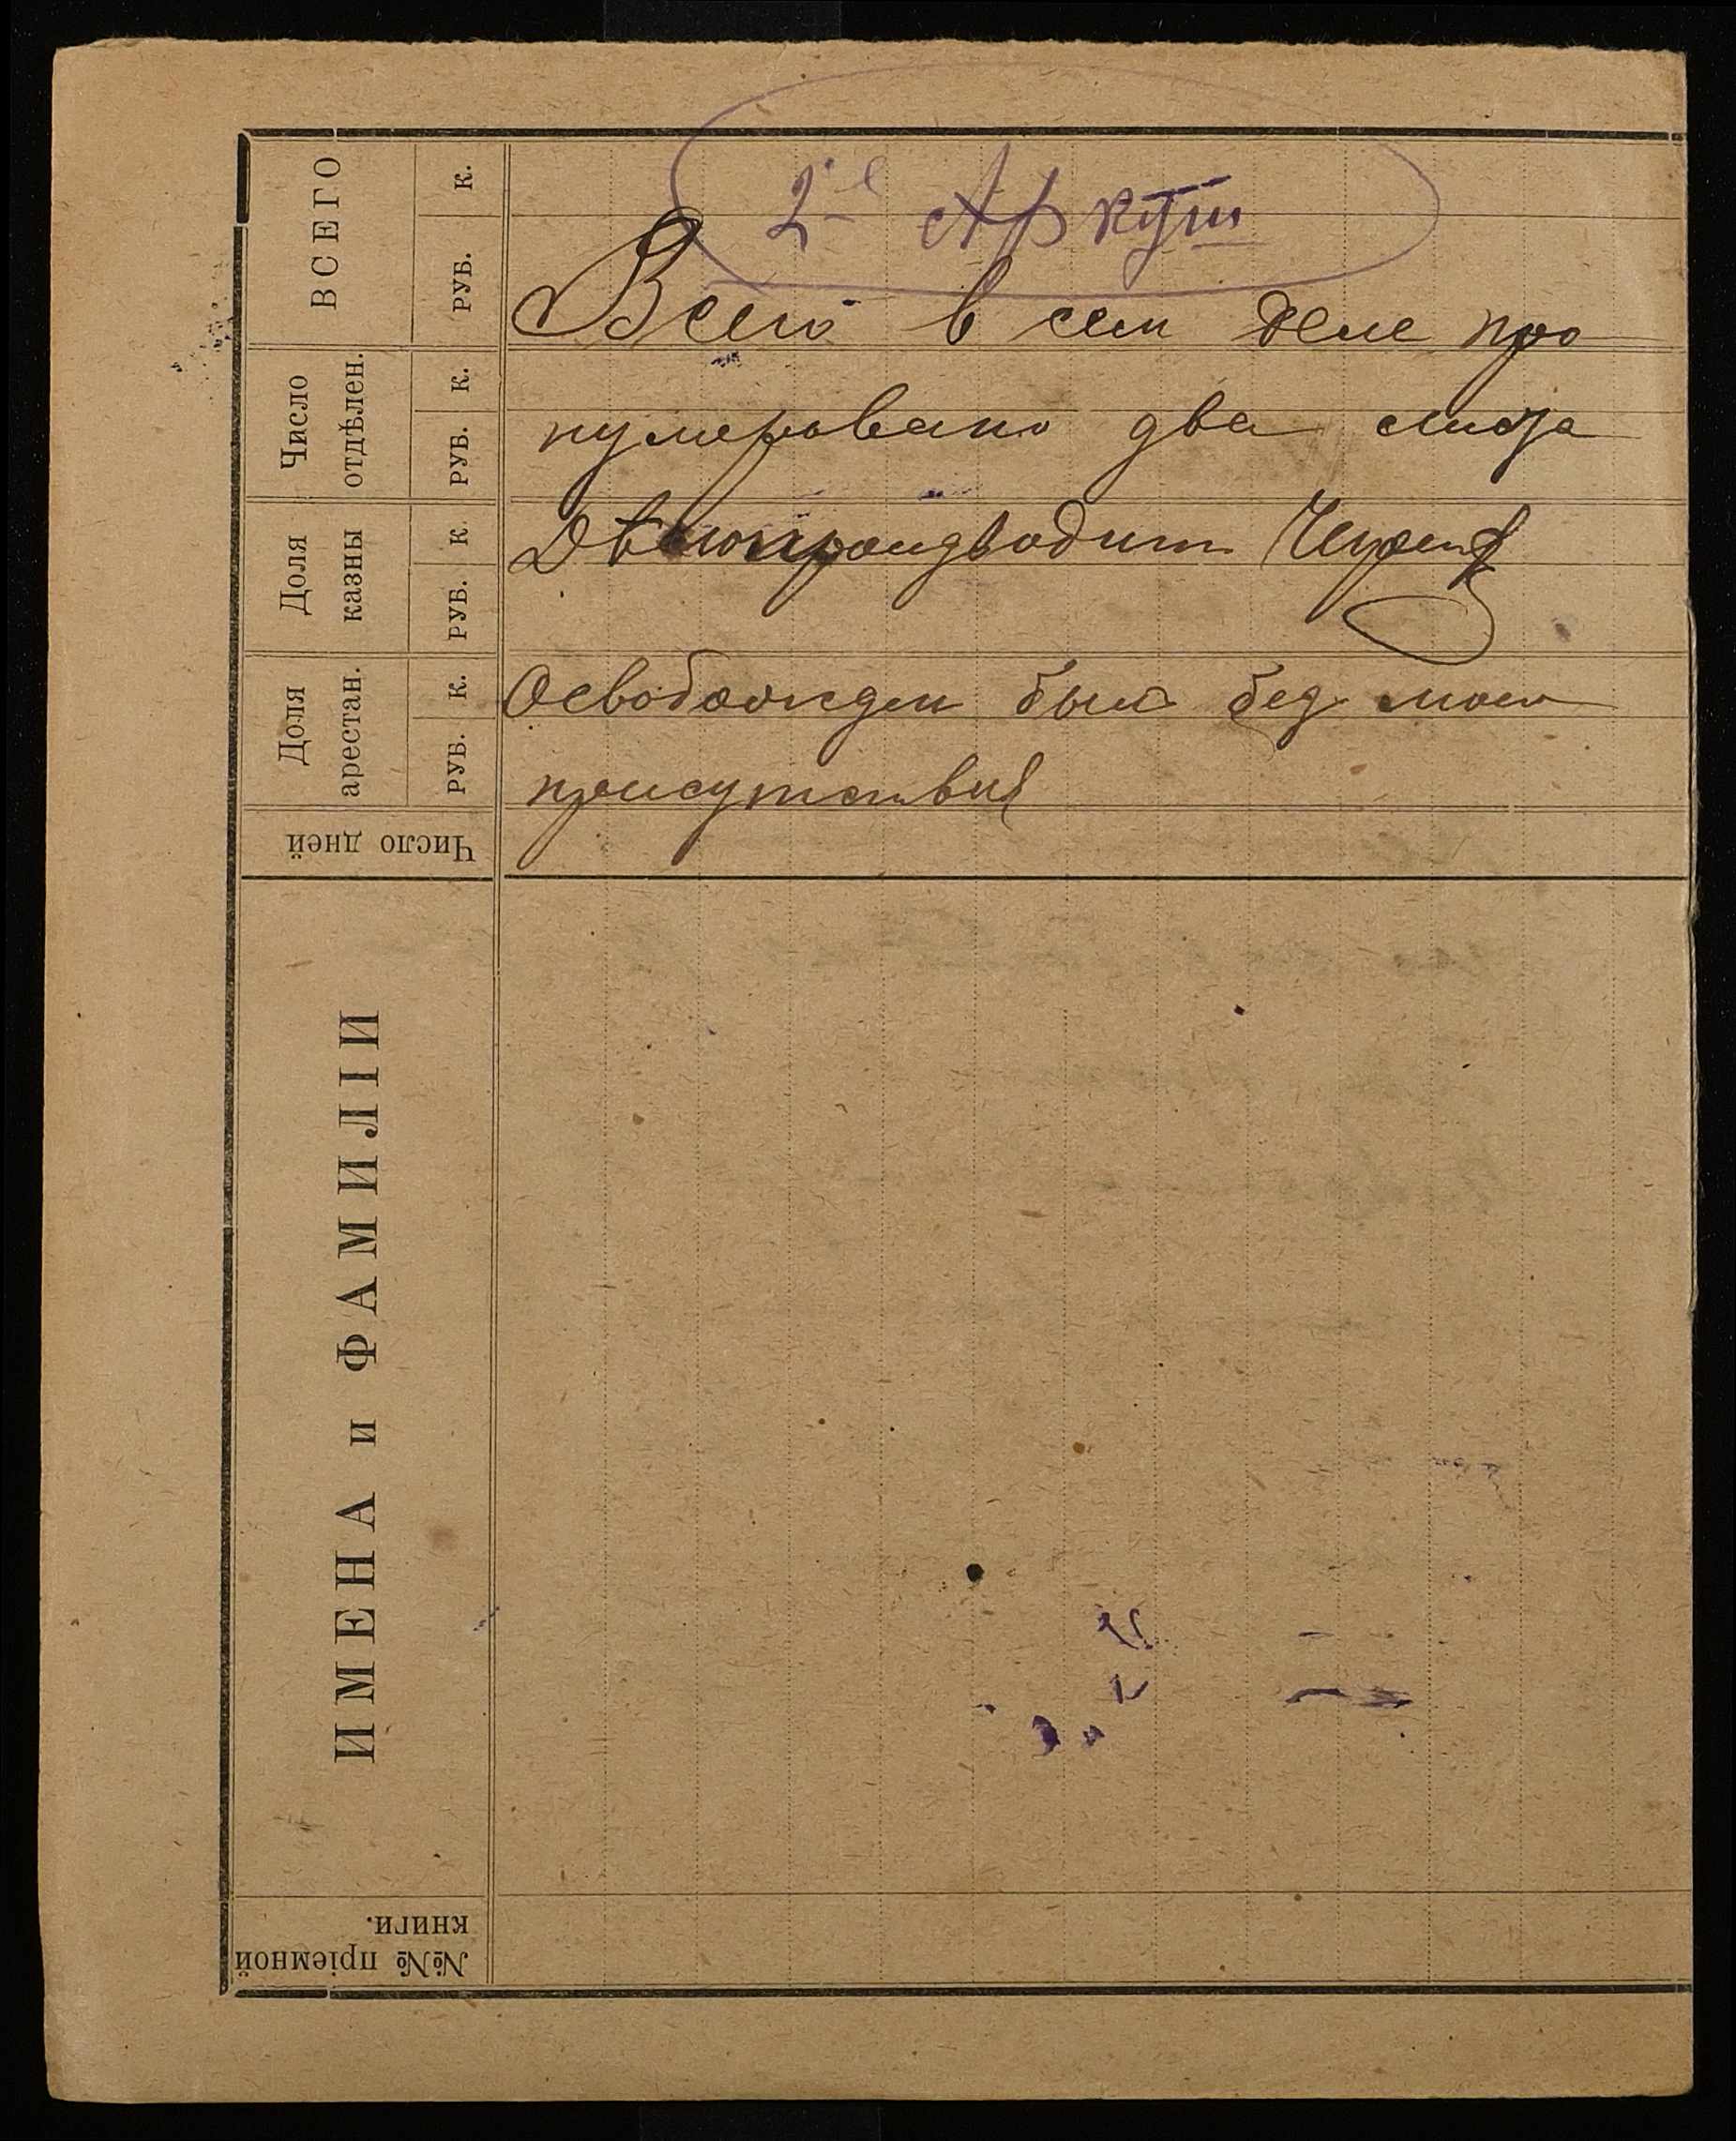 2-е Аркуш
Всего в сем деле про
нумеровано два листа
Делопроизводит
Освобожден был без моего
присутствия
ВСЕГО
РУБ. К.
Число
отдѣлен.
РУБ. К.
Доля
казны
РУБ. К
Доля
арестан.
РУБ. К.
Число дней
ИМЕНА и ФАМИЛІИ
№№ пріемной
книги.